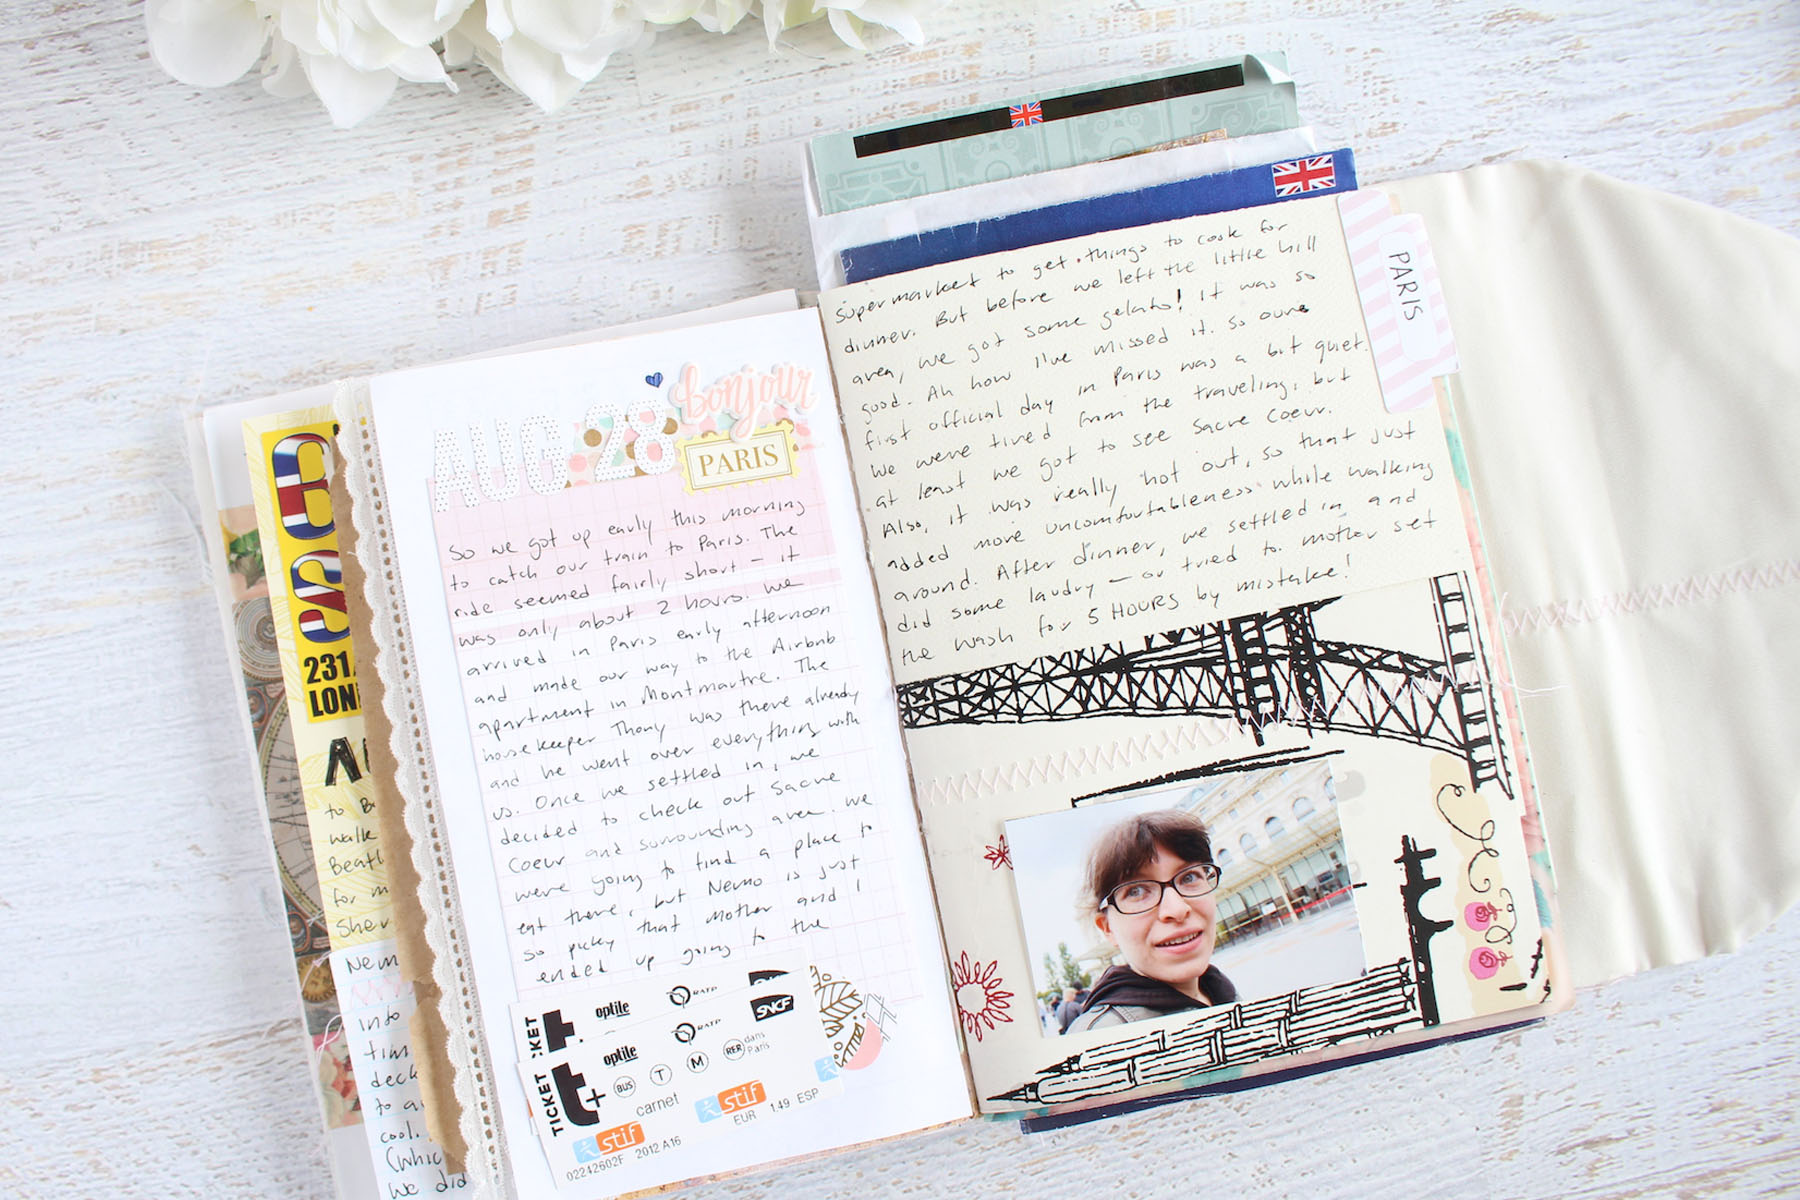 231
LON
to B
walk
Beatl
for m
Sher
Nem
into
tim
deck
to a
cool.
(Whic
we did
AUG 28
bonjour
PARIS
So we got up early this morning
to catch our train to Paris. The
ride seemed fairly short – it
was only about 2 hours. We
arrived in Paris early afternoon
and made our way to the Airbnb
apartment in Montmartre. The
housekeeper Thony was there already
and he went over everything with
us. Once we settled in, we
decided to check out Sacre
Coeur and surrounding area. We
were going to find a place to
eat there, but Nemo is just
so picky that Mother and I
ended up going to the
TICKET
optile
RATP
SNCF
TICKET
t+
optile
RATP
BUS T M RER dans Paris
carnet
stif
EUR 1.49 ESP
stif
02242602F 2012 A16
PARIS
supermarket to get things to cook for
dinner. But before we left the little hill
area, we got some gelato! It was so
good. Ah how I've missed it. So our
first official day in Paris was a bit quiet.
We were tired from the traveling, but
at least we got to see Sacre Coeur.
Also, it was really hot out, so that just
added more uncomfortableness while walking
around. After dinner, we settled in and
did some laudry – or tried to. Mother set
the wash for 5 HOURS by mistake!